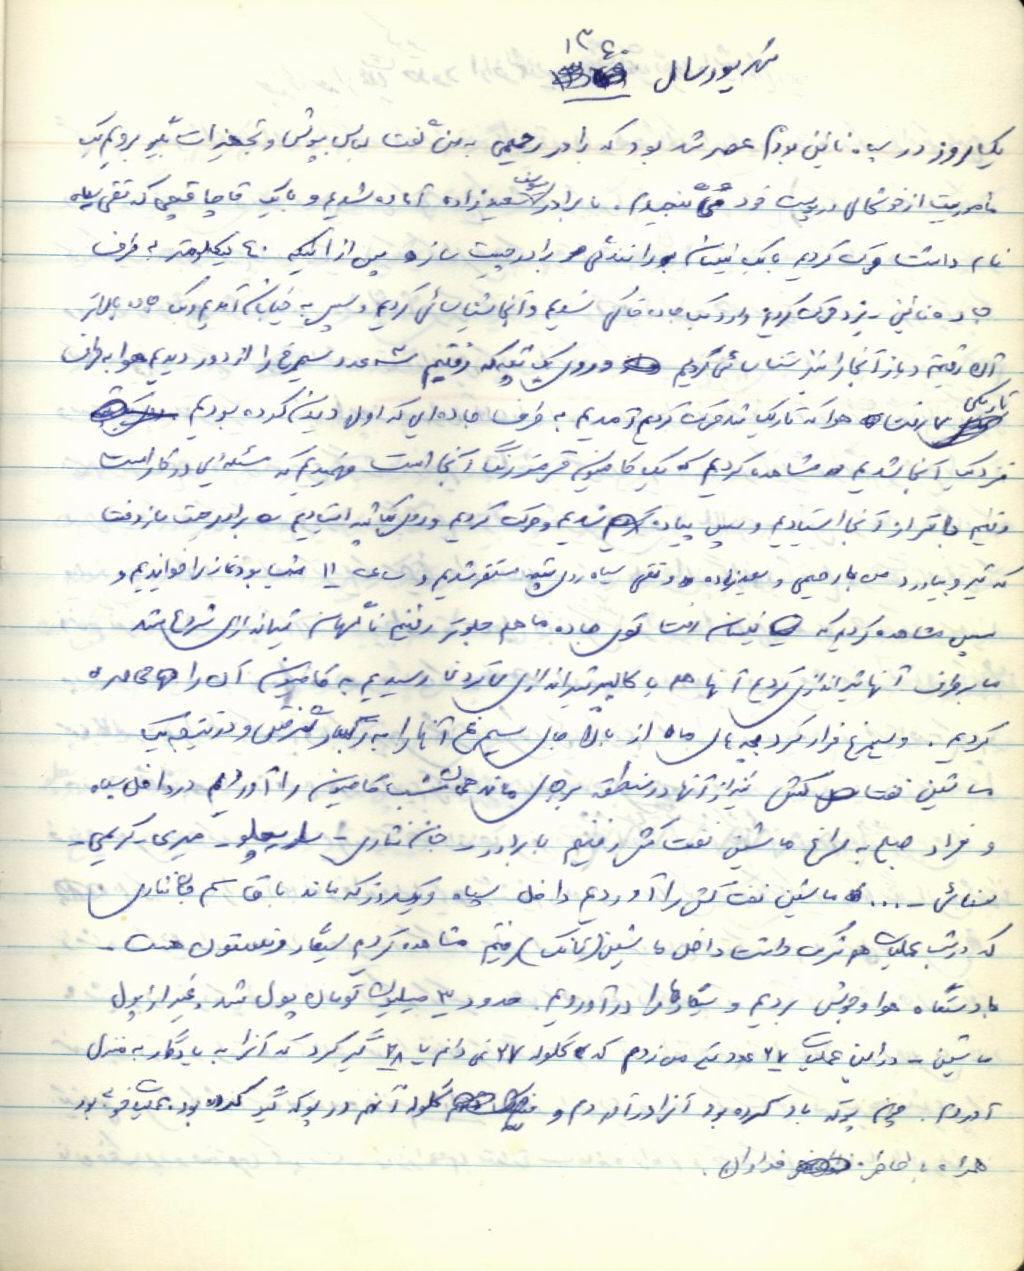 شهریور سال ۱۳۶۰
یک روز در سپاه نائین بودم عصر شده بود که برادر رحیمی به من گفت لباس بپوش و تجهیزات بگیر برویم یک
مأموریت از خوشحالی در پوست خود نمی گنجیدم. با برادر یوسف سعیدزاده آماده شدیم و با یک قاچاقچی که تقی سیاه
نام داشت حرکت کردیم با یک نیسان به رانندگی برادر حجت پس از اینکه ۴۰ کیلومتر به طرف
جاده نائین - یزد حرکت کردیم وارد یک جاده خاکی شدیم و آنجا شناسائی کردیم و سپس به خیابان آمدیم و یک جاده بالاتر
رفتیم و باز آنجا را نیز شناسائی کردیم و روی یک تپه که رفتیم سه عدد سیمرغ را از دور دیدیم هوا به طرف
تاریکی می رفت هوا که تاریک شد حرکت کردیم آمدیم به طرف جاده ای که اول دیدن کرده بودیم
نزدیک آنجا شدیم مشاهده کردیم که یک کامیون قرمز رنگ آنجا است فهمیدیم که مسئله ای در کار است
رفتیم جلوتر از آنجا ایستادیم و سپس پیاده شدیم و حرکت کردیم و روی یک تپه ایستادیم برادر حجت باز رفت
که نیرو بیاورد من با رحیمی و سعیدزاده و تقی سیاه روی تپه مستقر شدیم و ساعت ۱۱ شب بود نماز را خواندیم و
سپس مشاهده کردیم که نیسان رفت توی جاده ما هم جلوتر رفتیم ناگهان تیراندازی شروع شد
ما بطرف آنها تیراندازی کردیم آنها هم با کالیبر تیراندازی می کردند تا رسیدیم به کامیون آن را محاصره
کردیم. و سیمرغ فرار کرد بچه های ما از بالا جای سیمرغ آنها را به رگبار بستند و در نتیجه یک
ماشین نفت کش نیز از آنها در منطقه برجای ماند همان شب کامیون را آوردیم در داخل سپاه
و فردا صبح به سراغ ماشین نفت کش رفتیم با برادر - جان نثاری - - میری - کریمی -
سنائی - ... ماشین نفت کش را آوردیم داخل سپاه و یک روز که ماند با قاسم جان نثاری
که در شب عملیات هم شرکت داشت داخل ماشین (تانک) رفتیم مشاهده کردم سیگار وینستون هست -
با دستگاه هوا و جوش بردیم و سیگارها را در آوردیم. حدود ۳ میلیون تومان پول شد. غیر از پول
ماشین - در این عملیات ۲۷ عدد تیر من زدم که گلوله ۲۷ نمی دانم یا ۲۸ گیر کرد که آنرا به یادگار به منزل
آوردم. چون پوکه باد کرده بود آنرا در آوردم و گلوله آنهم در پوکه گیر کرده بود. عملیات خوبی بود
همراه با خاطره فراوان.